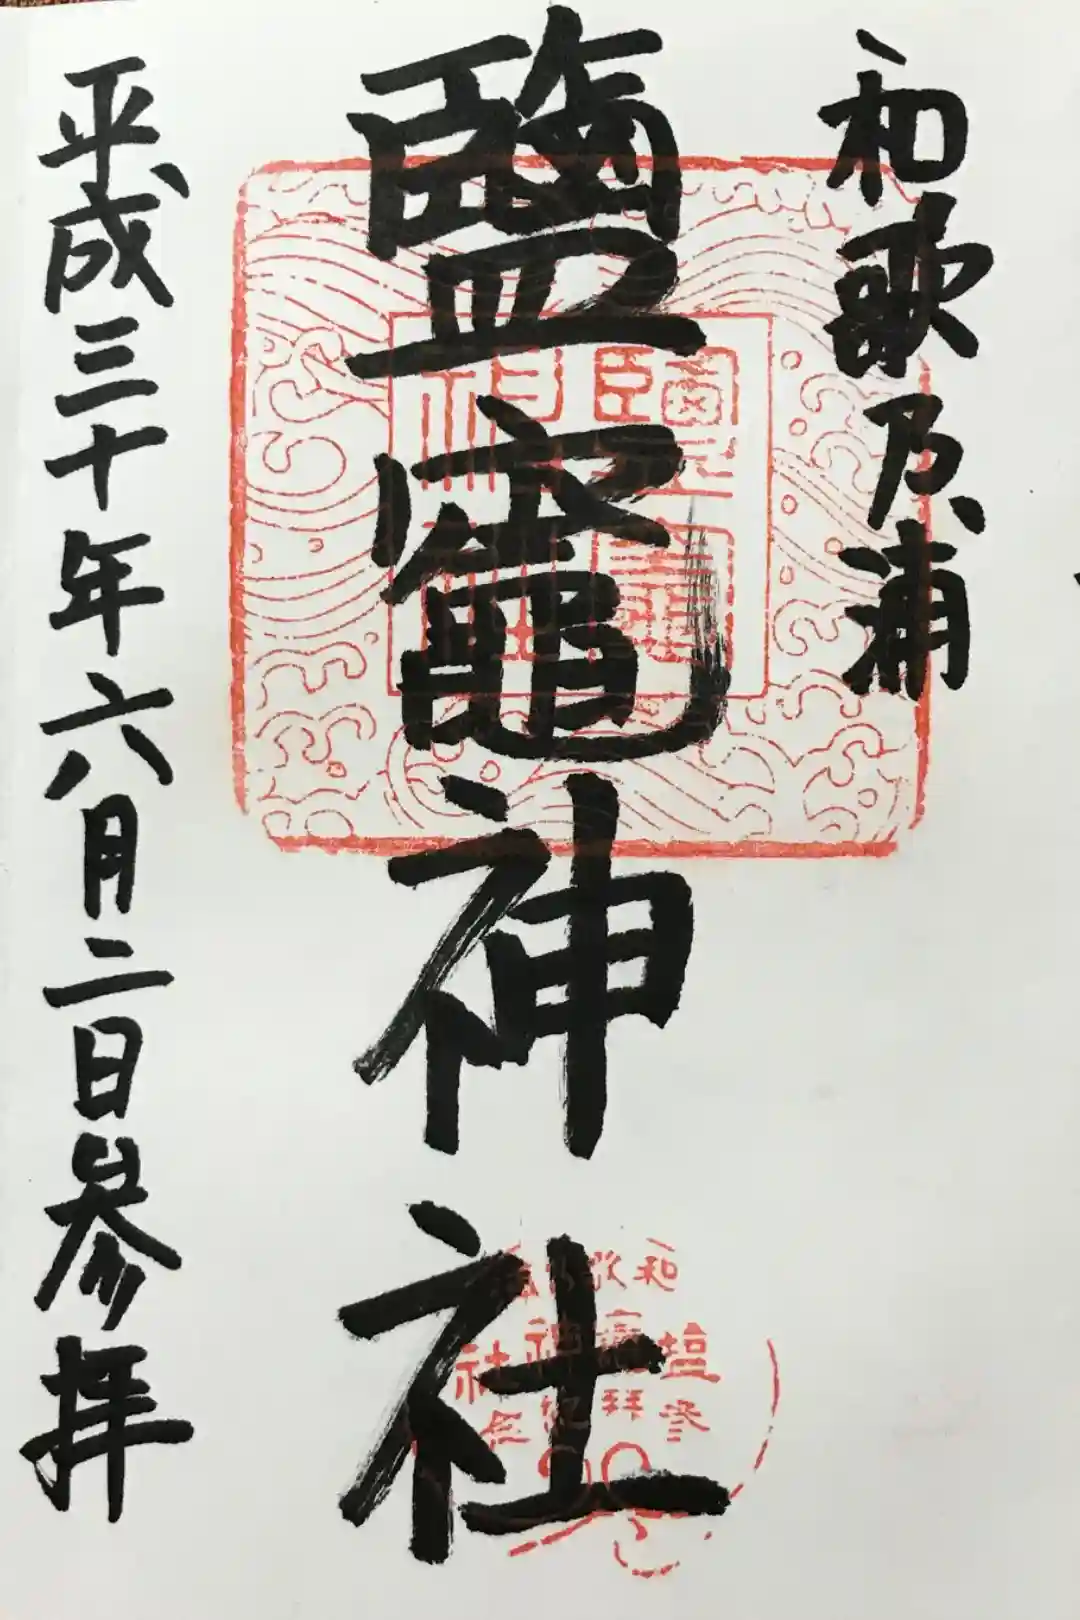 和歌乃浦
鹽竈神社
平成三十年六月二日参拝
鹽竈
神社
和歌乃浦
塩竈神社
参拝紀念